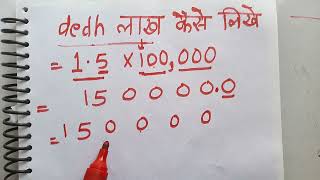 dedh लाख कैसे लिखे
= 1.5 × 100,000
= 15 0 0 0 0.0
= 1 5 0 0 0 0